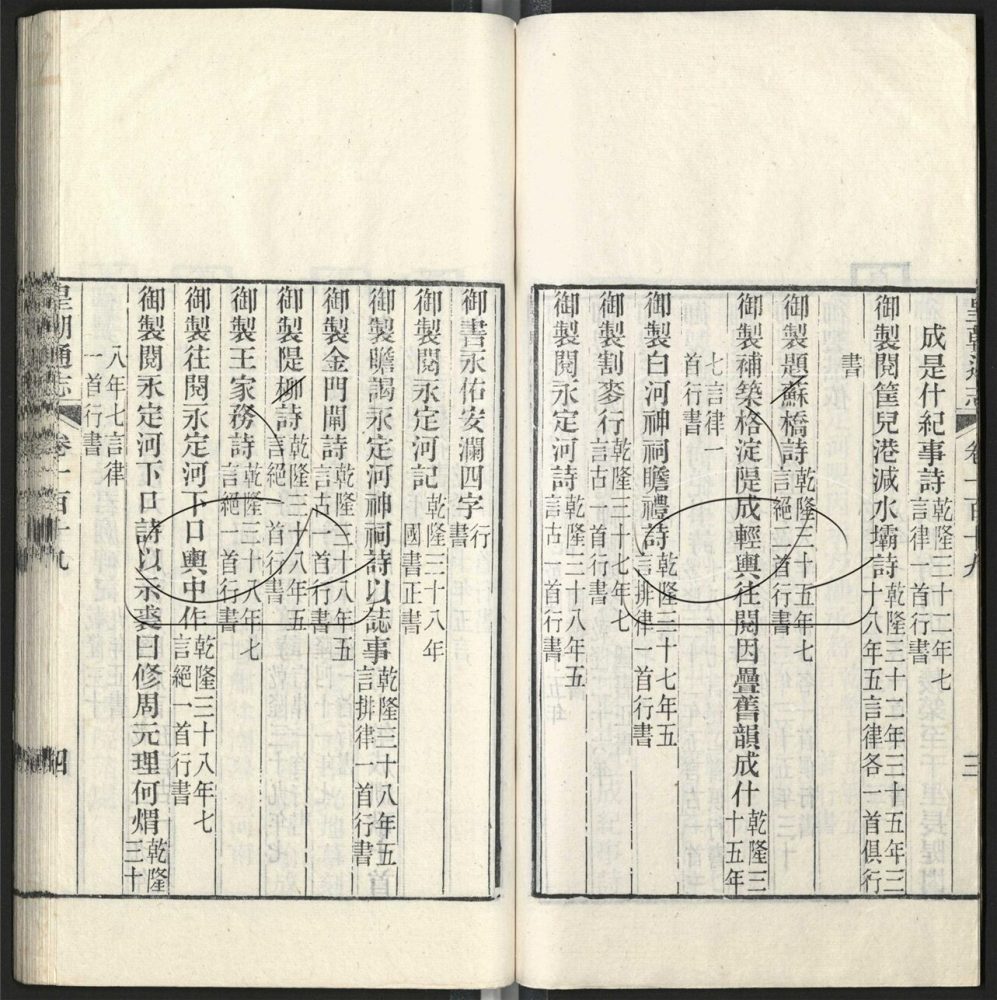 皇朝通志 卷一百十九 三
成是什紀事詩乾隆三十二年七言律一首行書
御製閱筐兒港減水壩詩乾隆三十二年三十五年三十八年五言律各一首俱行
書
御製題蘇橋詩乾隆三十五年七言絕二首行書
御製補築格淀隄成輕輿往閱因疊舊韻成什乾隆三十五年
七言律一首行書
御製白河神祠瞻禮詩乾隆三十七年五言排律一首行書
御製割麥行乾隆三十七年七言古一首行書
御製閱永定河詩乾隆三十八年五言古一首行書
御書永佑安瀾四字行書
御製閱永定河記乾隆三十八年國書正書
御製瞻謁永定河神祠詩以誌事乾隆三十八年五言排律一首行書
御製金門閘詩乾隆三十八年五言古一首行書
御製隄柳詩乾隆三十八年五言絕一首行書
御製王家務詩乾隆三十八年七言絕一首行書
御製往閱永定河下口輿中作乾隆三十八年七言絕一首行書
御製閱永定河下口詩以示裘曰修周元理何煟乾隆三十
八年七言律一首行書
皇朝通志 卷一百十九 四